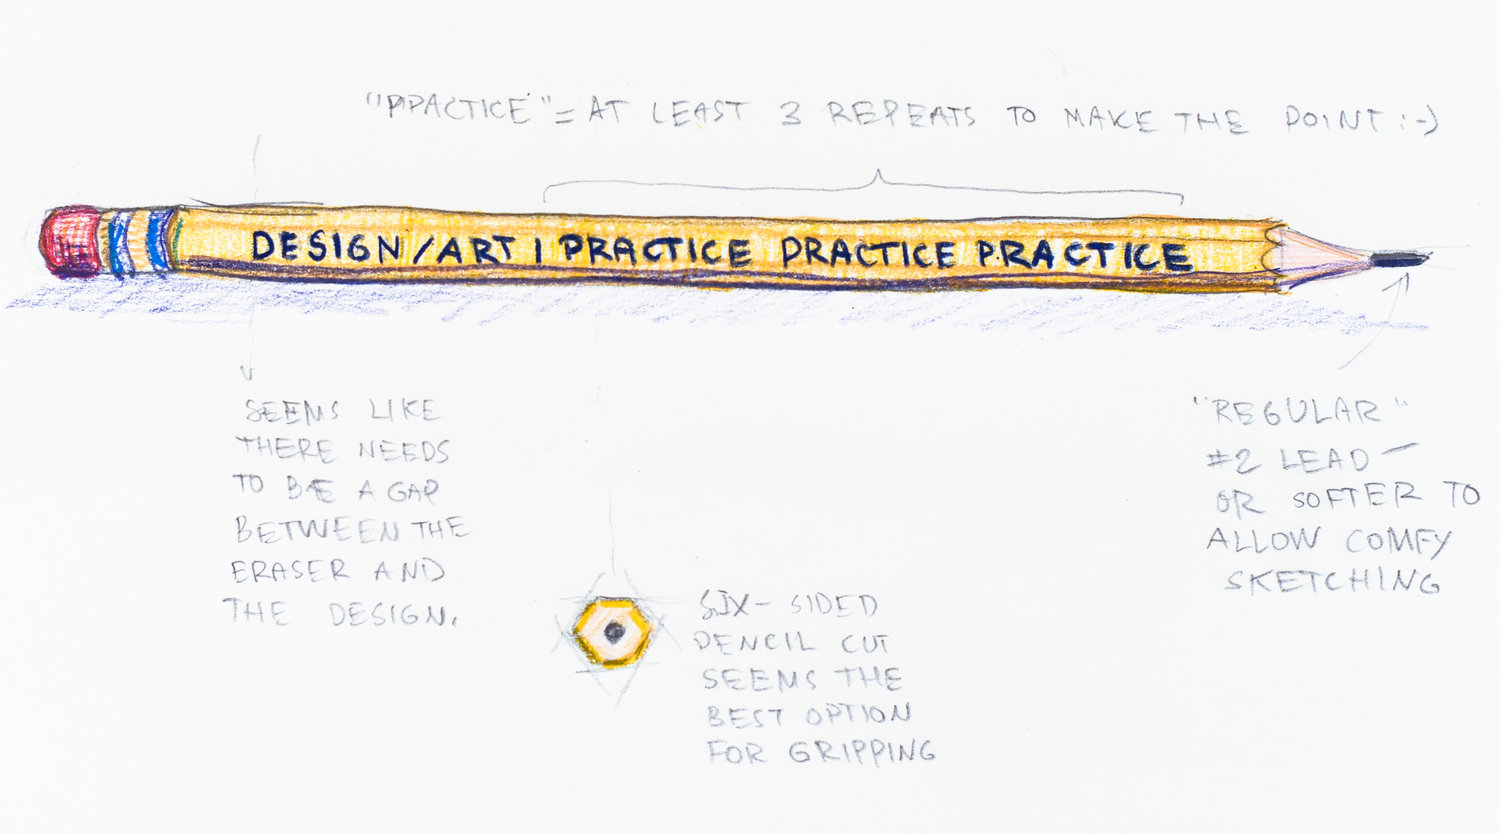 "PRACTICE" = AT LEAST 3 REPEATS TO MAKE THE POINT :-)
DESIGN/ART | PRACTICE PRACTICE PRACTICE
SEEMS LIKE
THERE NEEDS
TO BE A GAP
BETWEEN THE
ERASER AND
THE DESIGN.
SIX-SIDED
PENCIL CUT
SEEMS THE
BEST OPTION
FOR GRIPPING
"REGULAR"
#2 LEAD –
OR SOFTER TO
ALLOW COMFY
SKETCHING